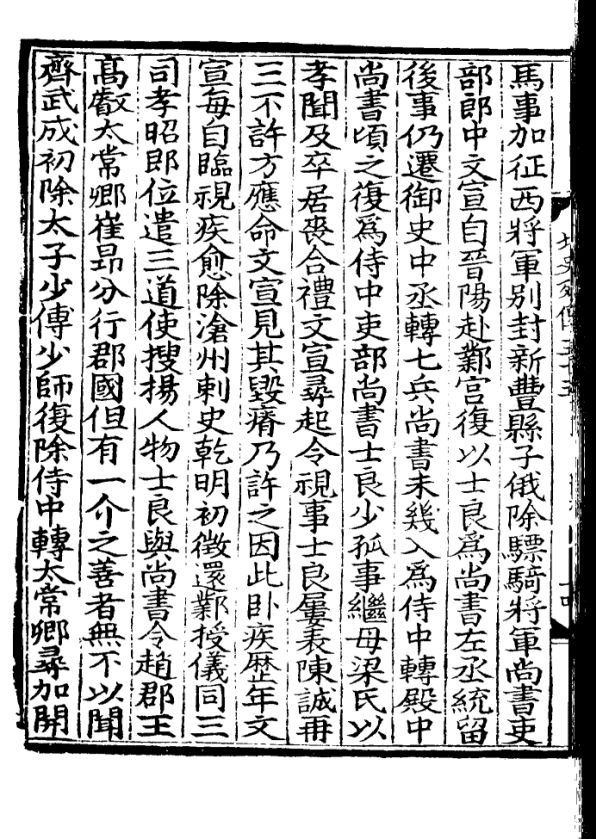 馬事加征西將軍别封新豐縣子俄除驃騎將軍尚書吏
部郎中文宣自晉陽赴鄴宫復以士良爲尚書左丞統留
後事仍遷御史中丞轉七兵尚書未幾入爲侍中轉殿中
尚書頃之復爲侍中吏部尚書士良少孤事繼母梁氏以
孝聞及卒居喪合禮文宣尋起令視事士良屢表陳誠再
三不許方應命文宣見其毁瘠乃許之因此卧疾歴年文
宣每自臨視疾愈除滄州刺史乾明初徵還鄴授儀同三
司孝昭郎位遣三道使搜揚人物士良與尚書令趙郡王
高叡太常卿崔昻分行郡國但有一介之善者無不以聞
齊武成初除太子少傅少師復除侍中轉太常卿尋加開